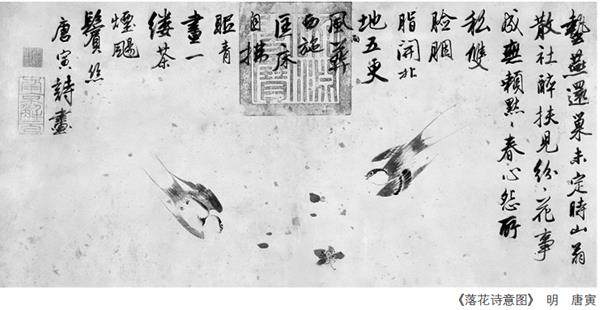 藝燕還巢未定時山翁
散社醉扶兒紛〻花事
成無賴默〻春心怨所
私雙
臉胭
脂開北
地五更
風雨葬
西施
匡床
自拂
眠青
晝一
縷茶
煙颺
鬢絲
唐寅詩畫
《落花诗意图》 明 唐寅